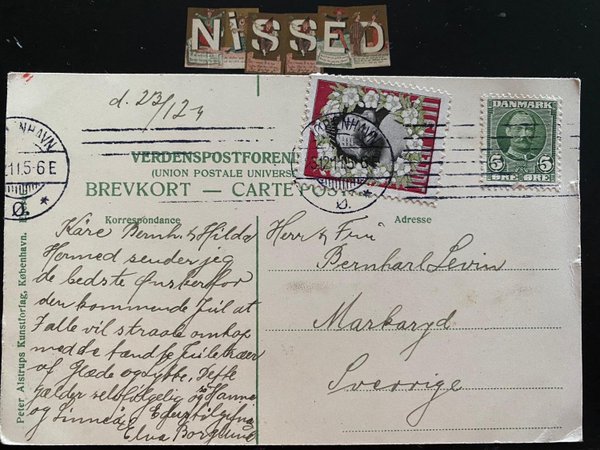 NiSSED
d. 23/12 11
VERDENSPOSTFORENI
(UNION POSTALE UNIVERS
BREVKORT — CARTE POST
KØBENHAVN
11.5-6E
Ø. *
KØBENHAVN
12.11.5-6E
Ø. *
DANMARK
5 5
ØRE ØRE
Korrespondance
Adresse
Peter Alstrups Kunstforlag, København.
Kære Bernh. & Hilda
Hermed sender jeg
de bedste Ønsker for
den kommende Jul at
I alle vil straale omkap
med de tændte Juletræer
af Glæde og Lykke. Dette
gælder selvfølgelig os Hanne
og Linnea
Elna Borglund
Herr & Fru
Bernhard Levin
Markaryd
Sverrige